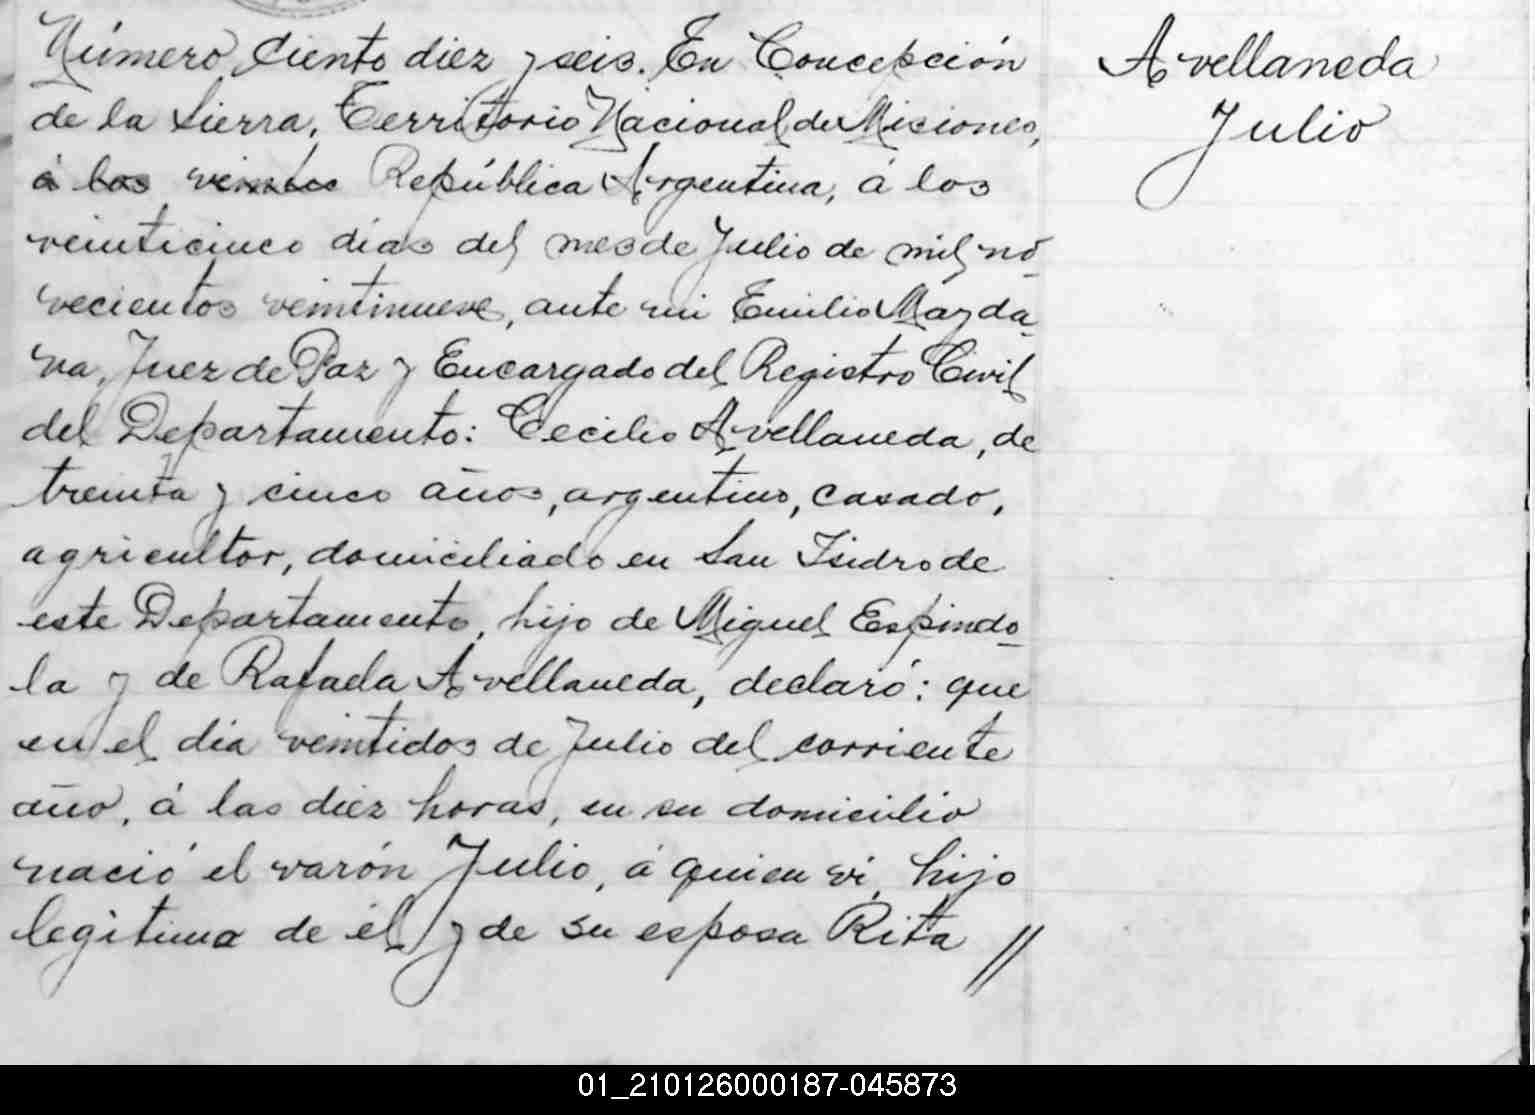 Número Ciento diez y seis. En Concepción
de la Sierra, Territorio Nacional de Misiones,
á los veintes República Argentina, á los
veinticinco días del mes de Julio de mil no-
vecientos veintinueve, ante mi Emilio Mayda-
na, Juez de Paz y Encargado del Registro Civil
del Departamento: Cecilio Avellaneda, de
treinta y cinco años, argentino, casado,
agricultor, domiciliado en San Isidro de
este Departamento, hijo de Miguel Espindo-
la y de Rafaela Avellaneda, declaró: que
en el dia veintidos de Julio del corriente
año, á las diez horas, en su domicilio
nació el varón Julio, á quien vi, hijo
legitimo de él y de su esposa Rita //
Avellaneda
Julio
01_210126000187-045873